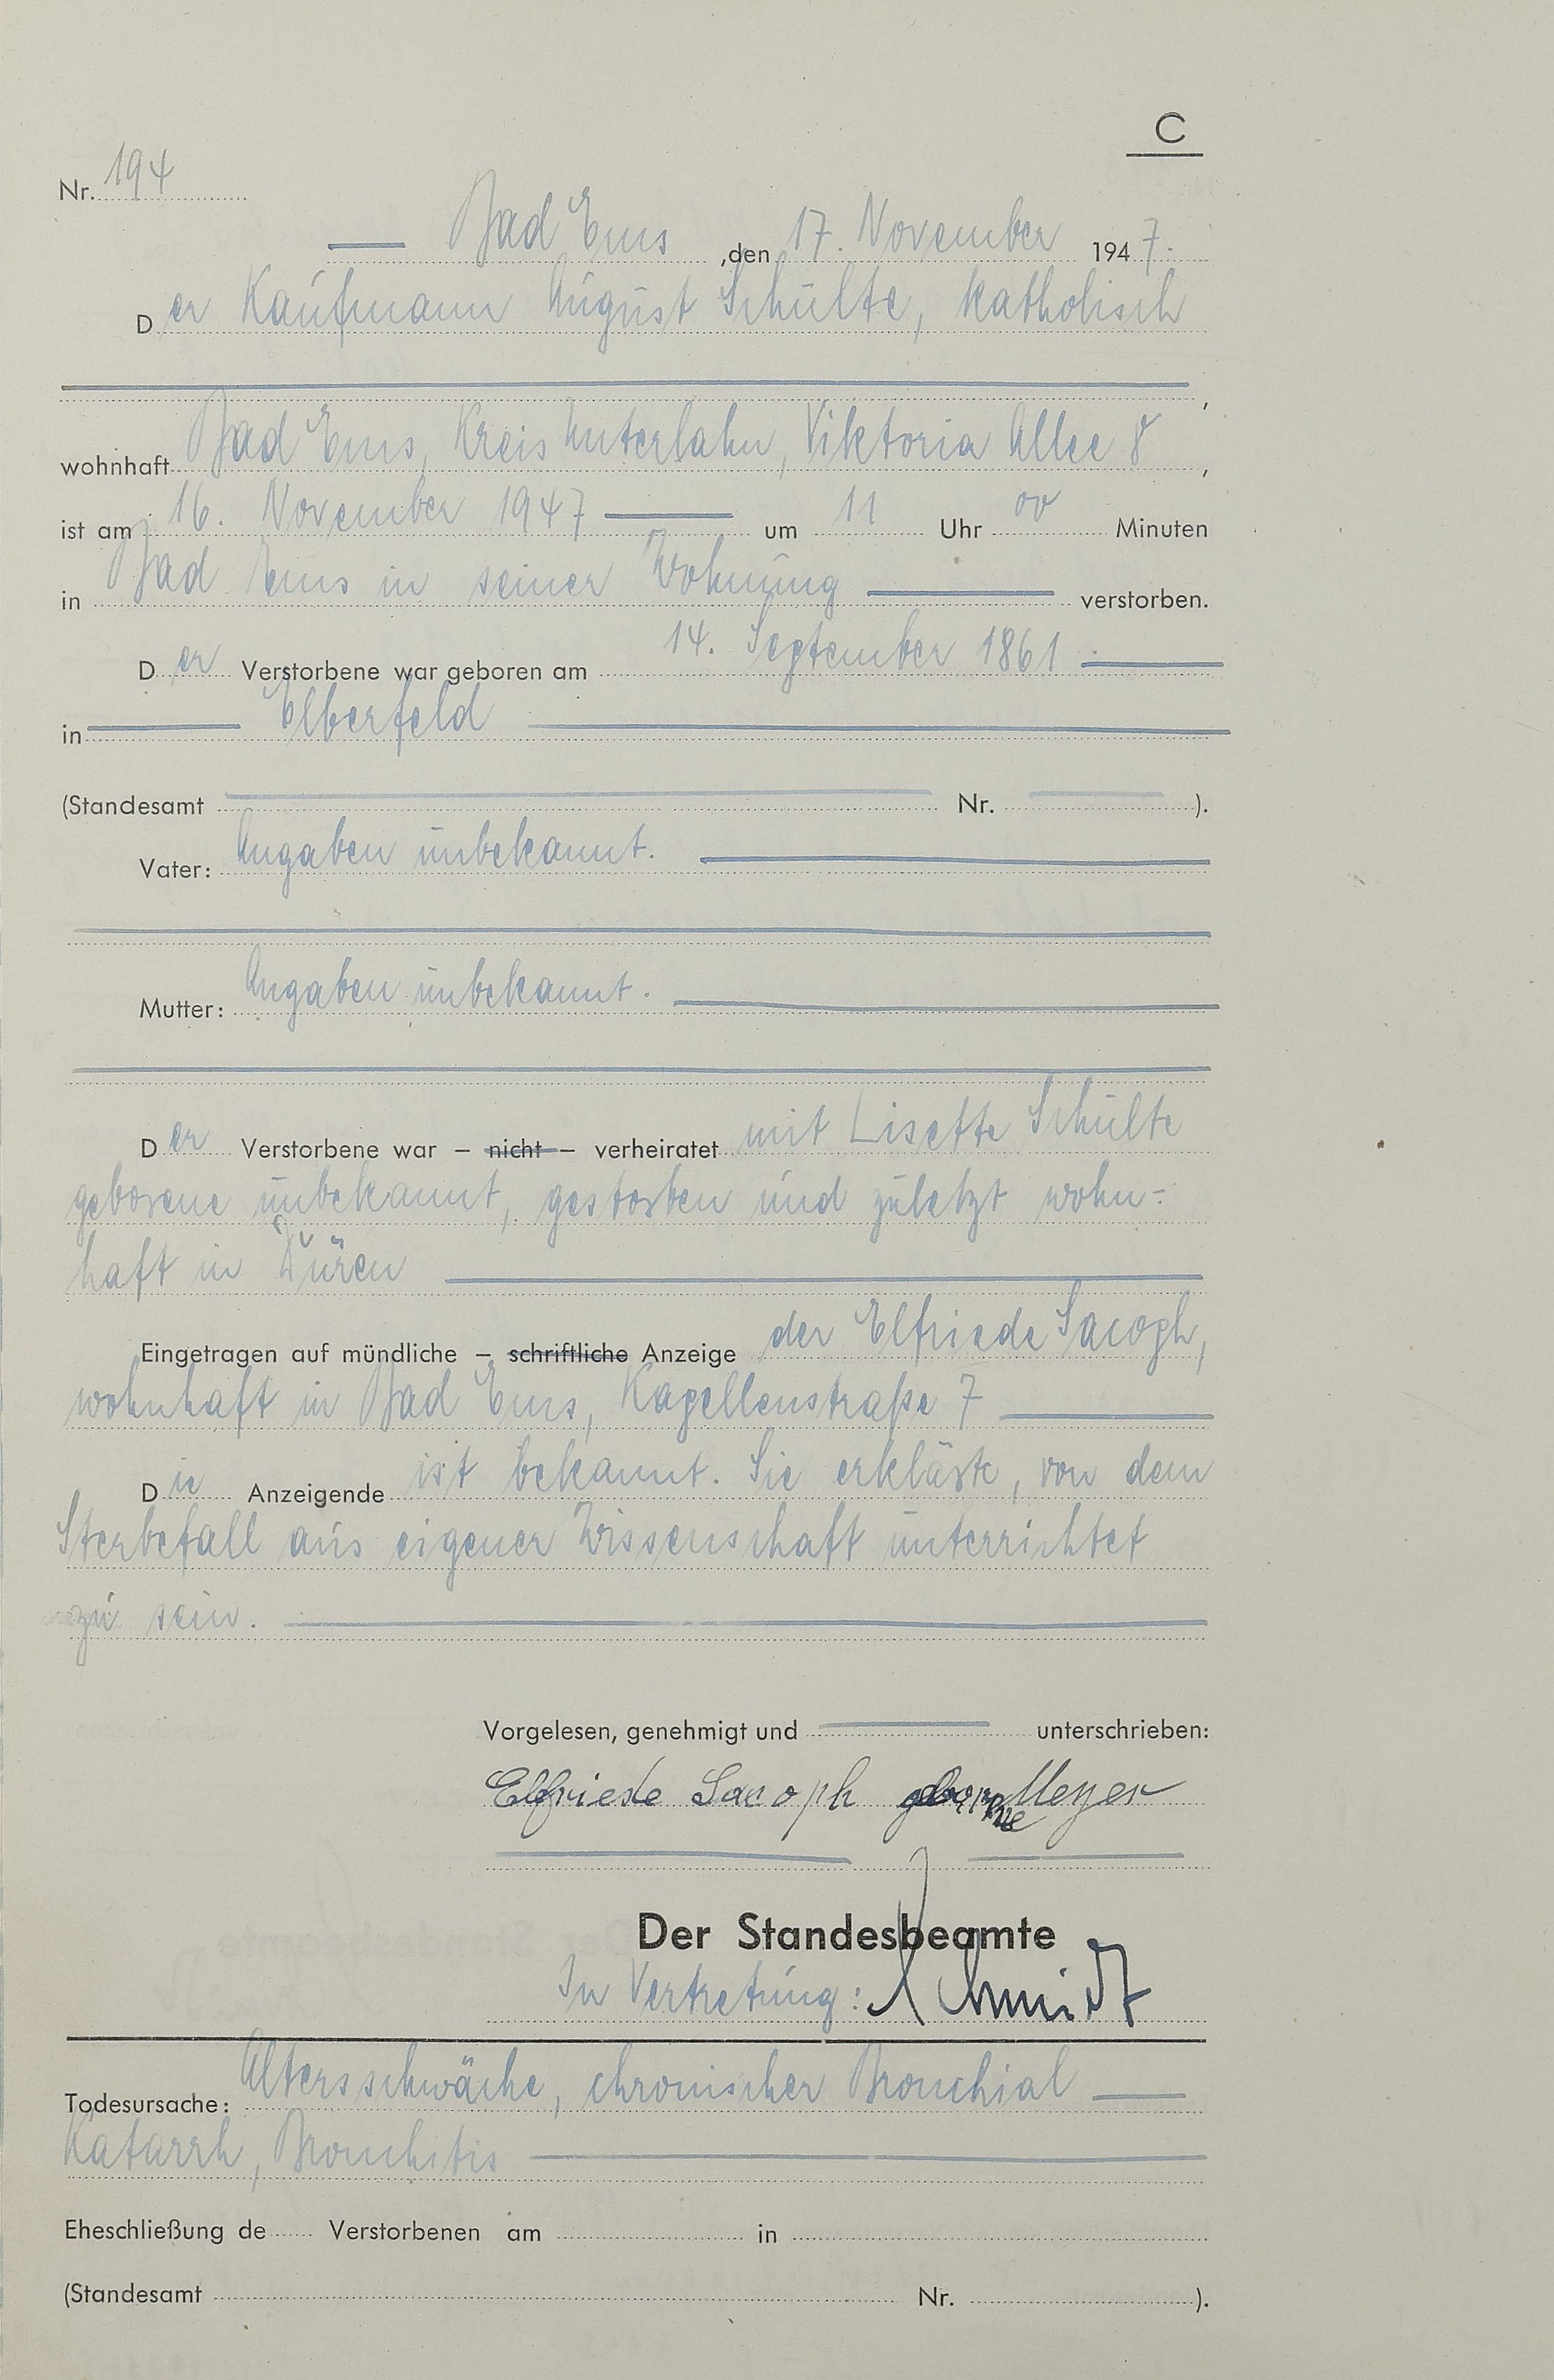 C
Nr. 194
Bad Ems, den 17. November 1947.
Der Kaufmann August Schulte, katholisch
,
wohnhaft Bad Ems, Kreis Unterlahn, Viktoria Allee 8,
ist am 16. November 1947 um 11 Uhr 00 Minuten
in Bad Ems in seiner Wohnung verstorben.
Der Verstorbene war geboren am 14. September 1861
in Elberfeld
(Standesamt Nr. ).
Vater: Angaben unbekannt.
Mutter: Angaben unbekannt.
Der Verstorbene war – nicht – verheiratet mit Lisette Schulte
geborene unbekannt, gestorben und zuletzt wohn-
haft in Düren
Eingetragen auf mündliche – schriftliche Anzeige der Elfriede Sacoph,
wohnhaft in Bad Ems, Kapellenstraße 7
Die Anzeigende ist bekannt. Sie erklärte, von dem
Sterbefall aus eigener Wissenschaft unterrichtet
zu sein.
Vorgelesen, genehmigt und unterschrieben:
Elfriede Sacoph geborene Meyer
Der Standesbeamte
In Vertretung: Schmidt
Todesursache: Altersschwäche, chronischer Bronchial
Katarrh, Bronchitis
Eheschließung de Verstorbenen am in
(Standesamt Nr. ).